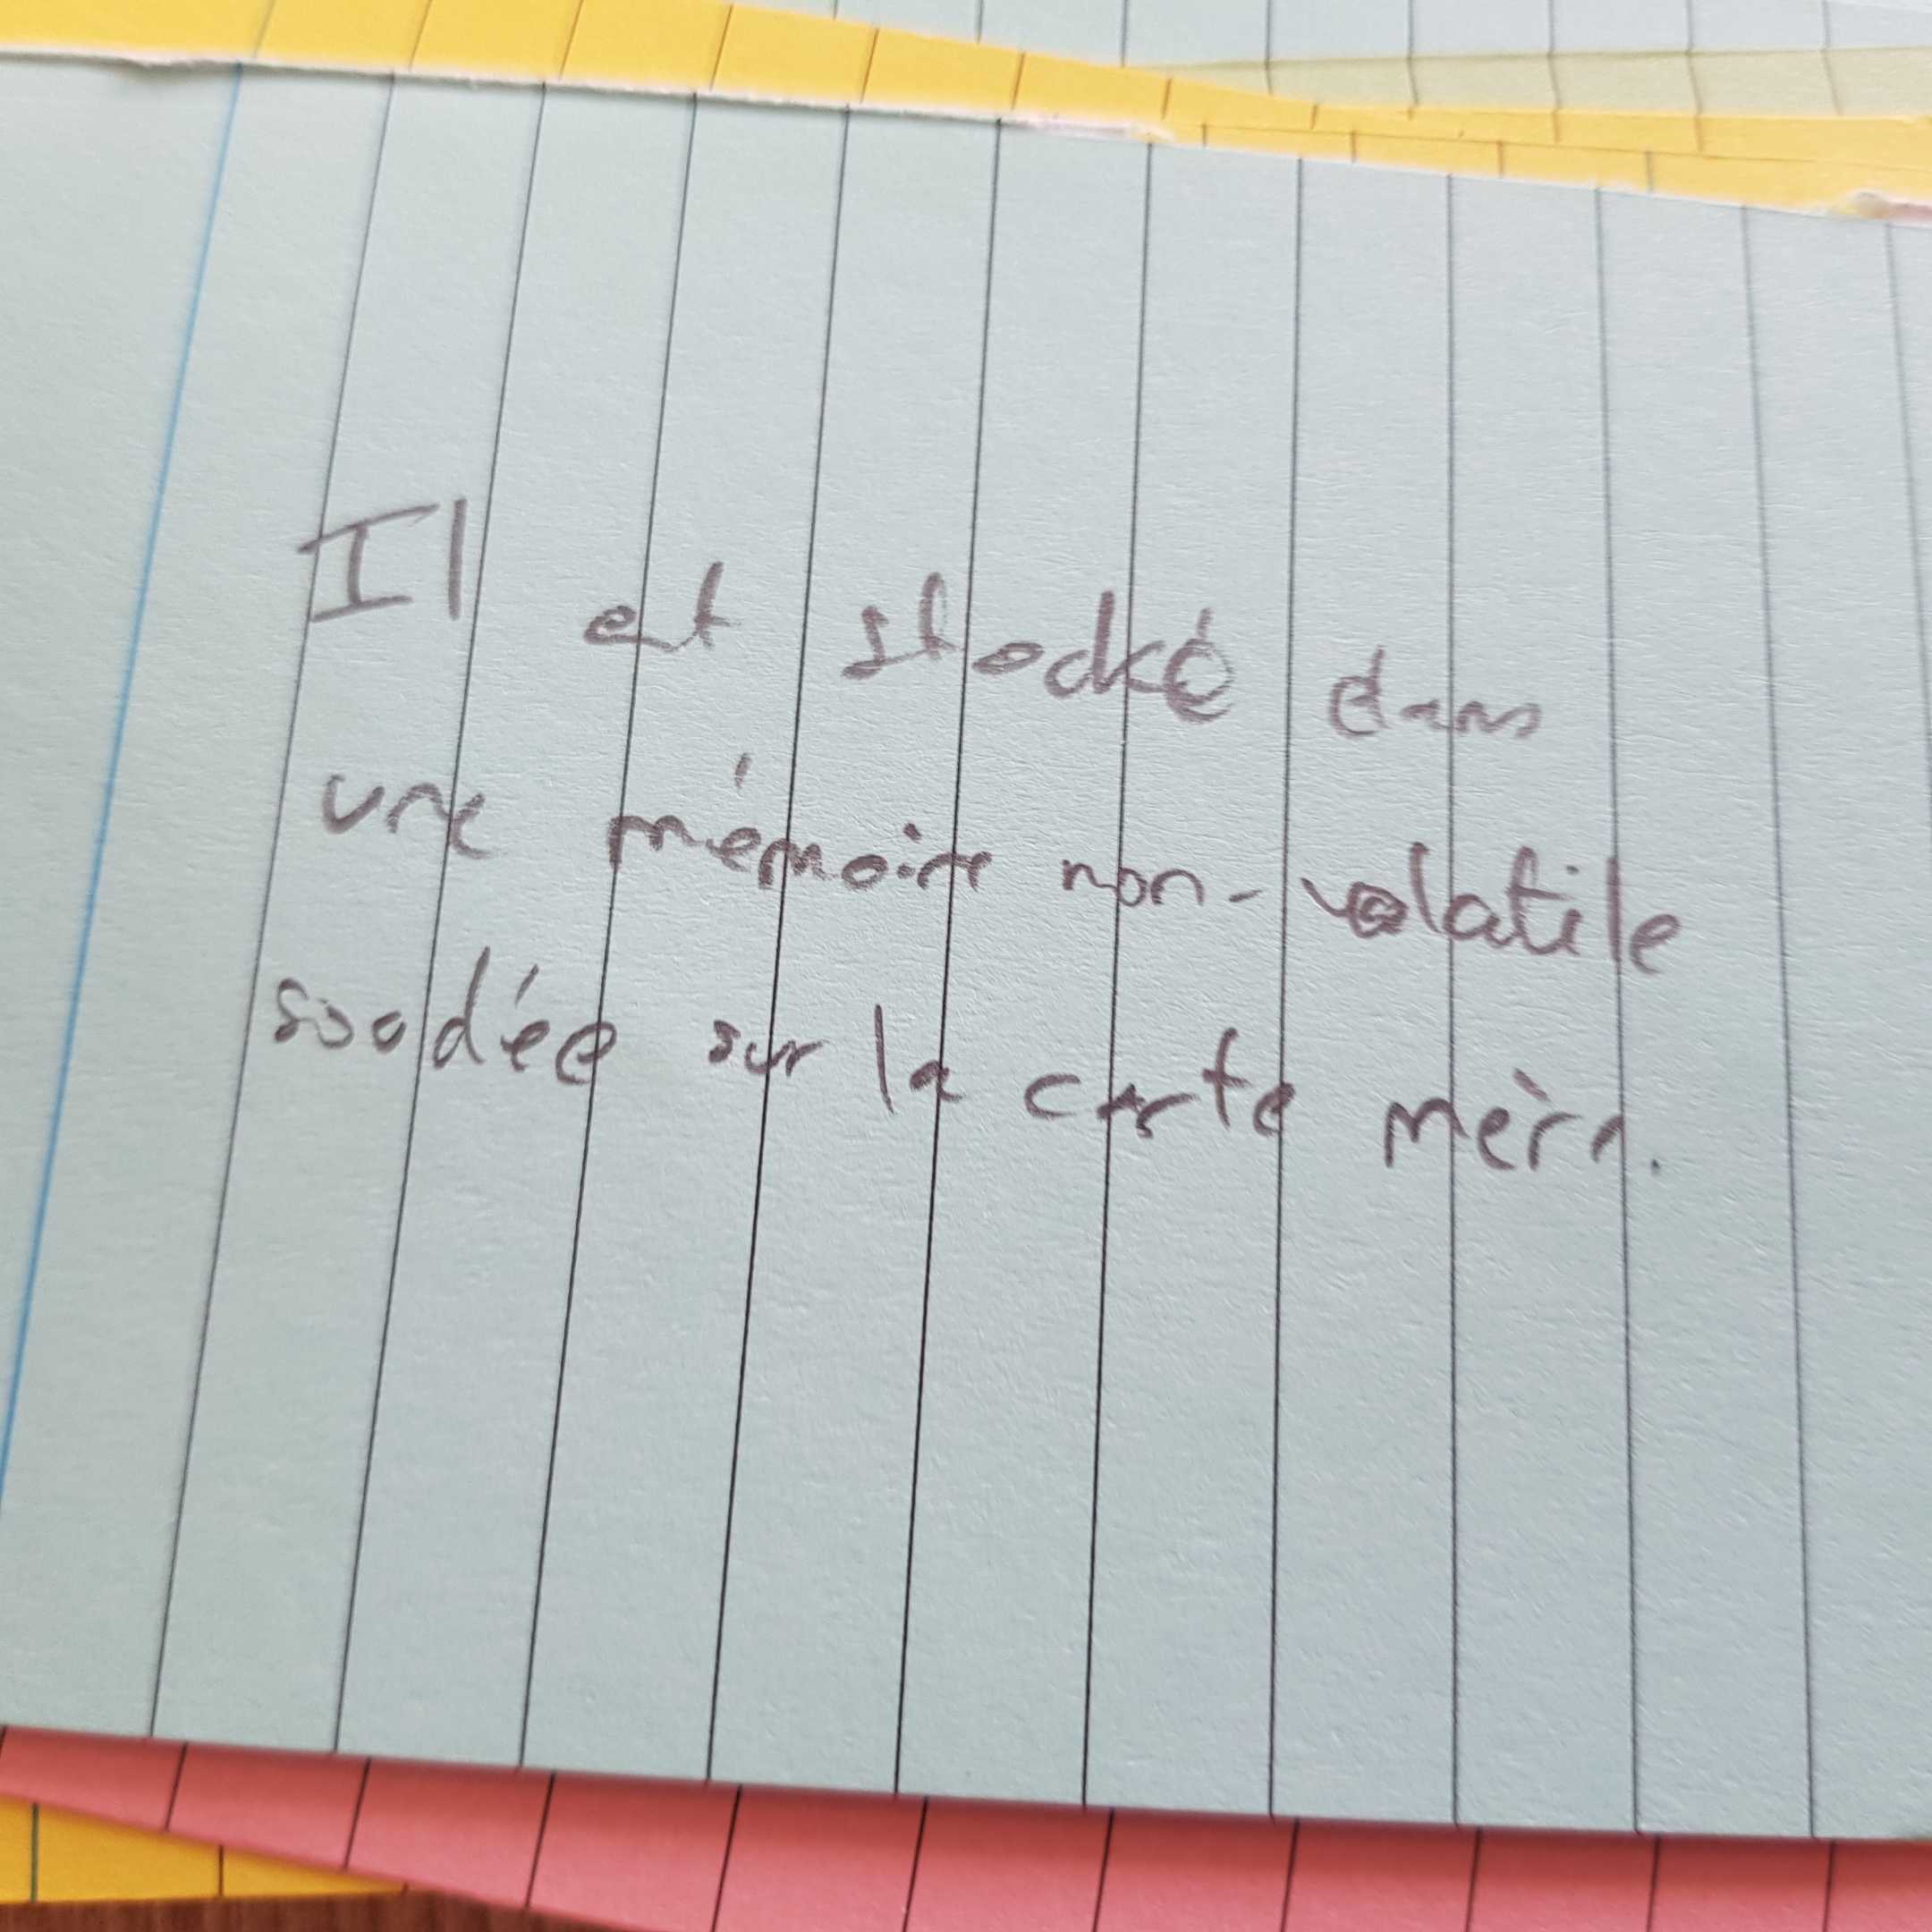 Il est stocké dans
une mémoire non-volatile
soudée sur la carte mère.